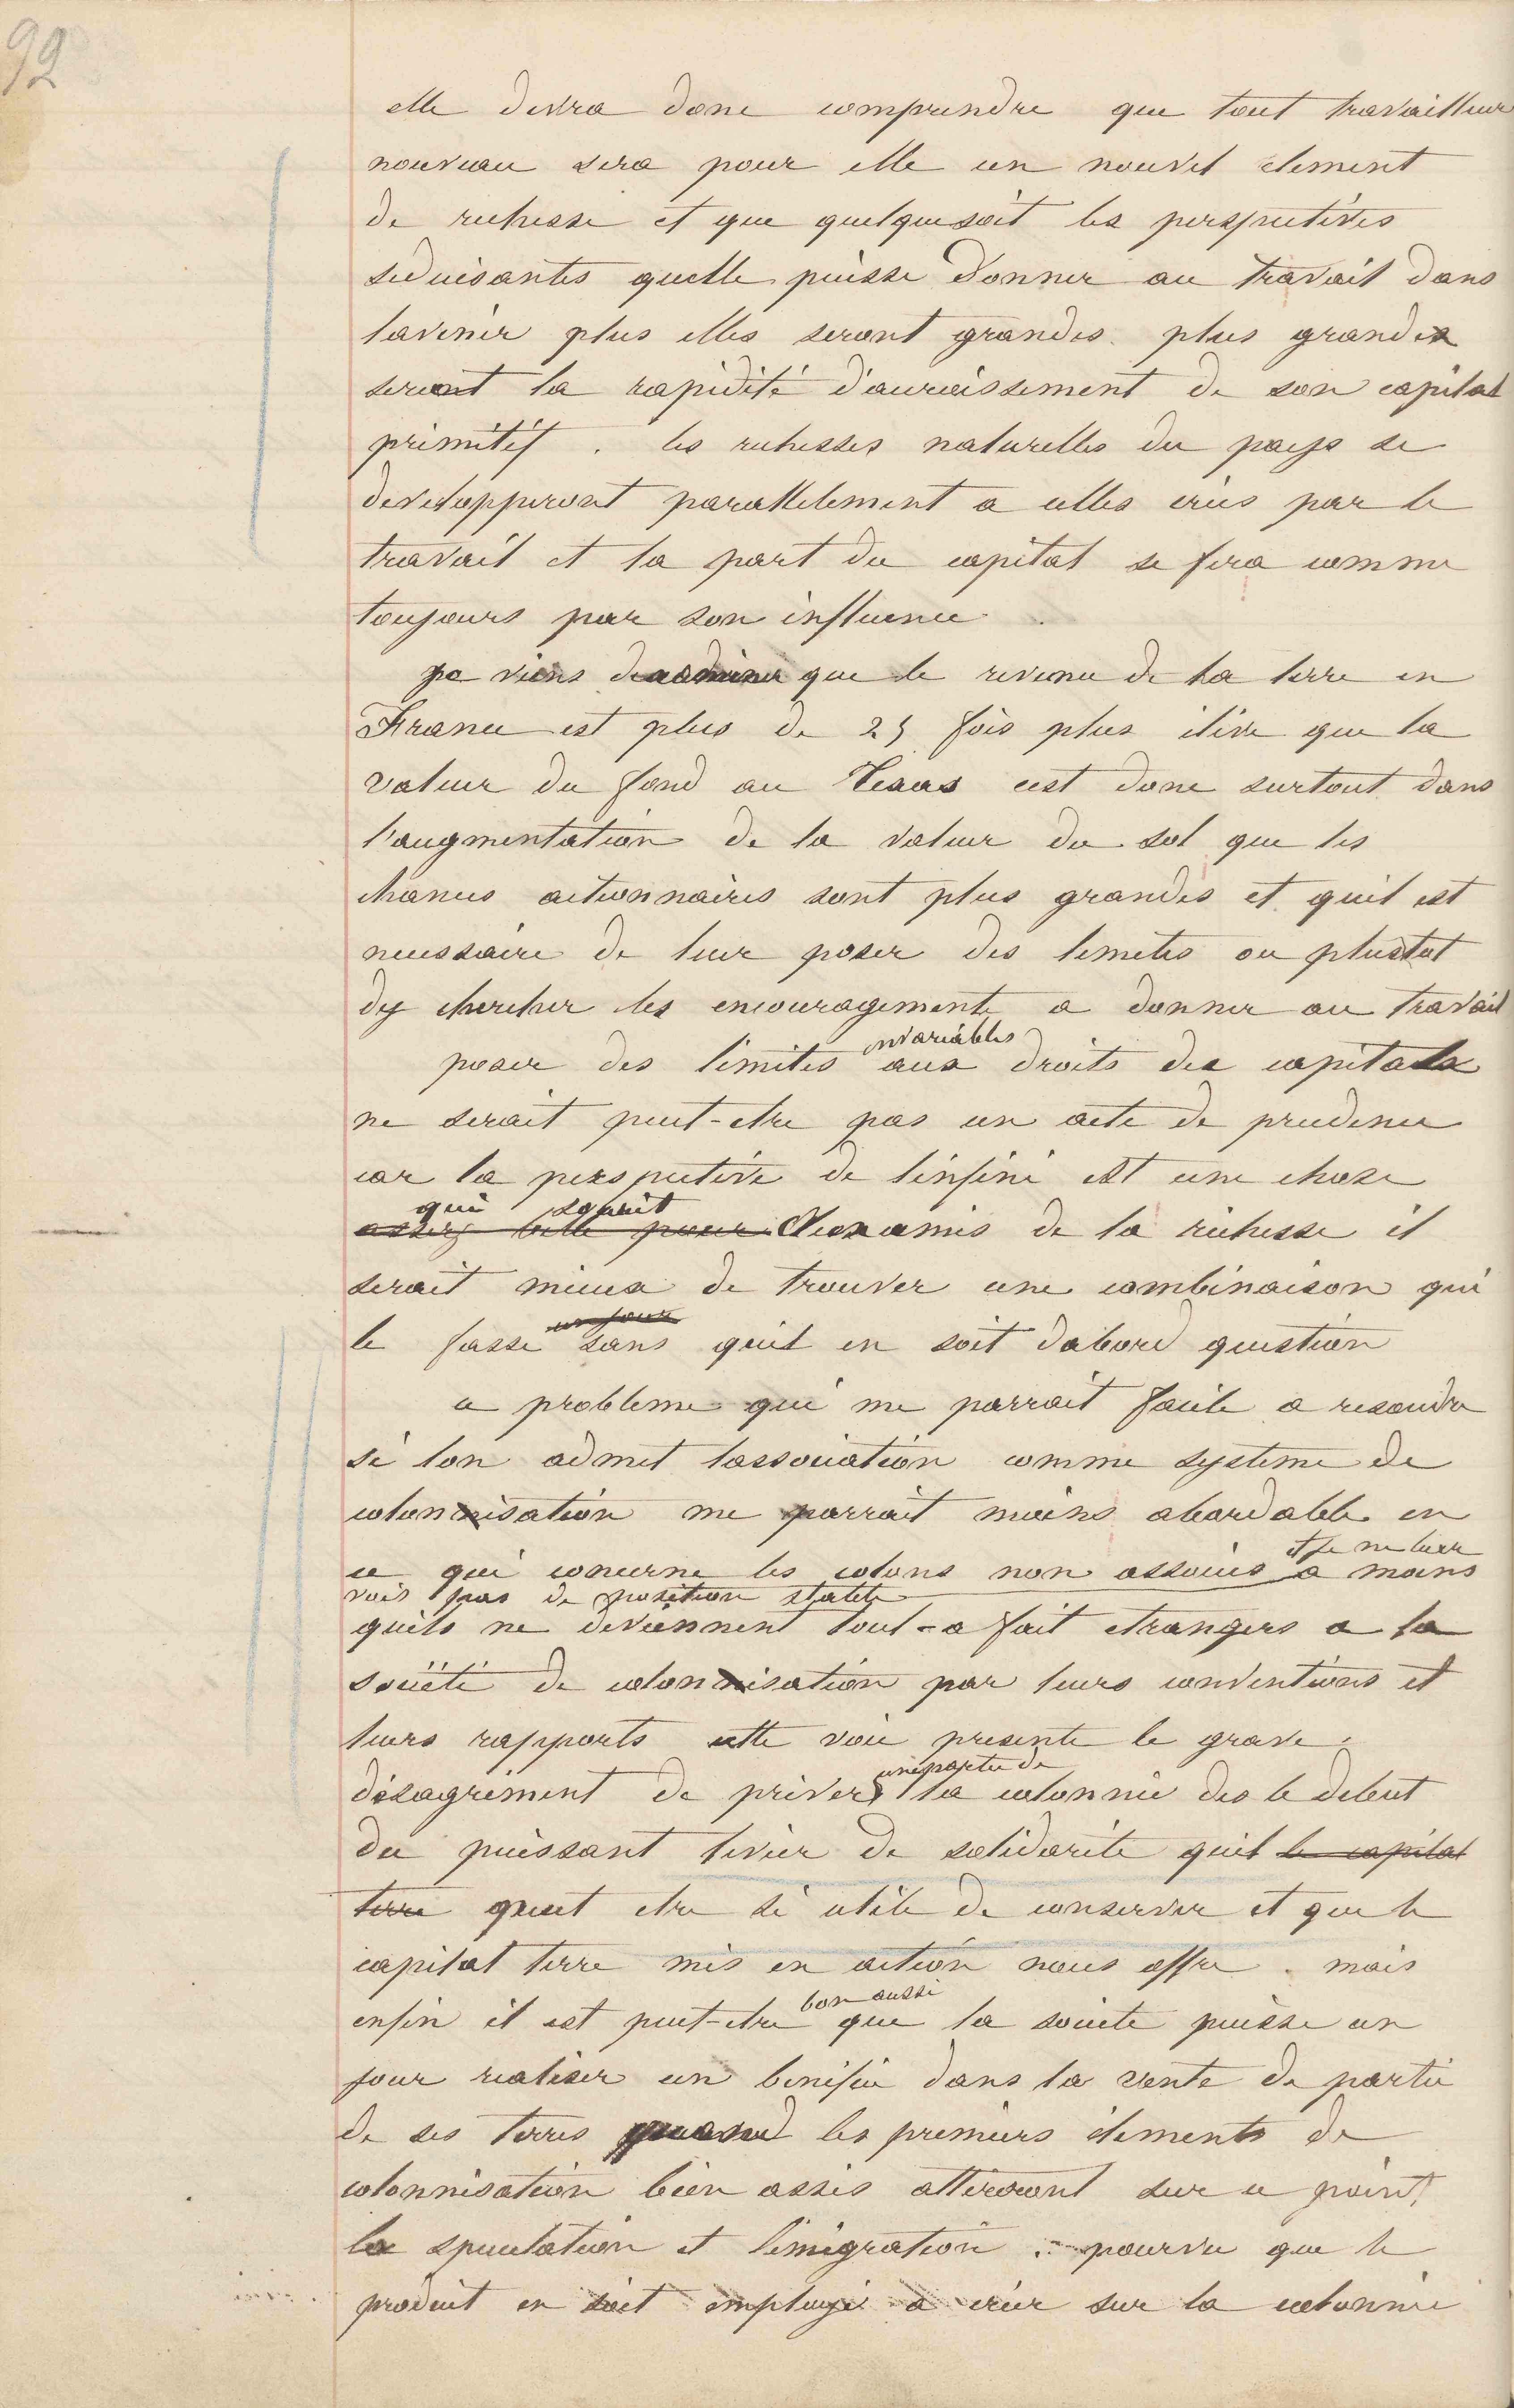 92
elle devra donc comprendre que tout travailleur
nouveau sera pour elle un nouvel element
de richesse et que quelquesoit les perspectives
seduisantes quelle puisse donner au travail dans
lavenir plus elles seront grandes plus grandes
seront la rapidité d'accroissement de son capital
primitif . les richesses naturelles du pays se
developperont parallelement a celles crées par le
travail et la part du capital se fera comme
toujours par son influence
je viens que le revenu de la terre en
France est plus de 25 fois plus élevé que la
valeur du fond au Texas cest donc surtout dans
l'augmentation de la valeur du sol que les
chances actionnaires sont plus grandes et quil est
necessaire de leur poser des limites ou plustot
dy chercher les encouragements a donner au travail
poser des limites invariables aux droits des capitals
ne serait peut-etre pas un acte de prudence
car la perspective de linfini est une chose
assez belle pour qui sourit aux amis de la richesse il
serait mieux de trouver une combinaison qui
le fasse un jour sans quil en soit dabord question
ce probleme qui me parrait facile a resoudre
si lon admet lassociation comme systeme de
colonnisation me parrait moins abordable en
ce qui concerne les colons non associés et je ne leur
vois pas de position stable a moins
quils ne deviennent tout-a fait etrangers a la
société de colonnisation par leurs conventions et
leurs rapports cette voie presente le grave
désagrément de priver une partie de la colonnie des le debut
du puissant levier de solidarite quil le capital
terre peut etre si utile de conserver et que le
capital terre mis en action nous offre . mais
enfin il est peut-etre bon aussi que la societe puisse un
jour realiser un benifice dans la vente de partie
de ses terres quand les premiers elements de
colonnisation bien assis attireront sur ce point
la speculation et l'émigration . pourvu que le
produit en soit employé a créer sur la colonnie